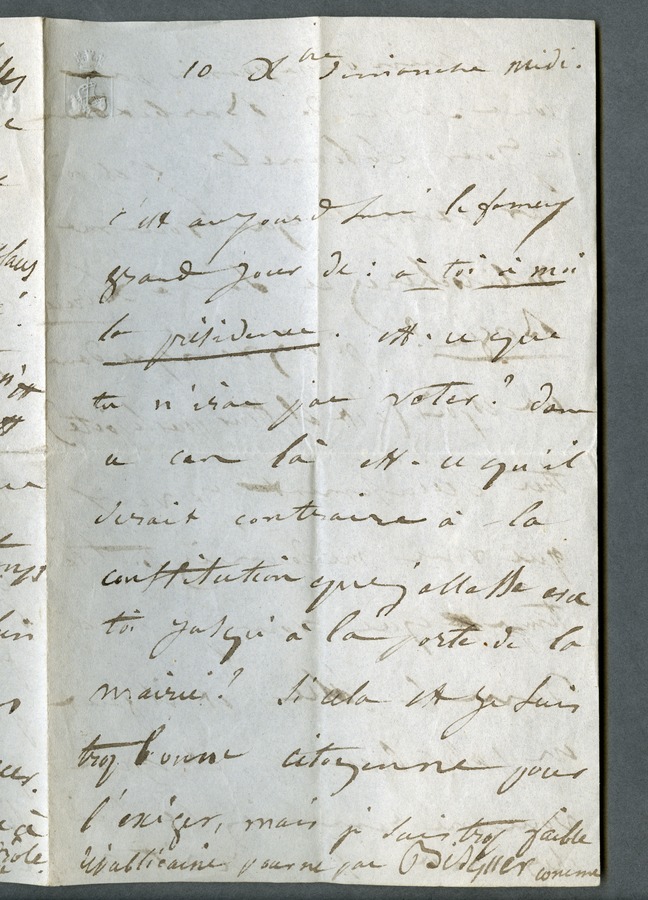 10 Xbre Dimanche midi.
C'est aujourd'hui le fameux
grand jour de : à toi à moi
la présidence. est-ce que
tu n'iras pas voter? dans
ce cas là est-ce qu'il
serait contraire à la
constitution que j'allasse avec
toi jusqu'à la porte de la
mairie? si cela est je suis
trop bonne citoyenne pour
l'exiger, mais je suis trop faible
républicaine pour ne pas comme